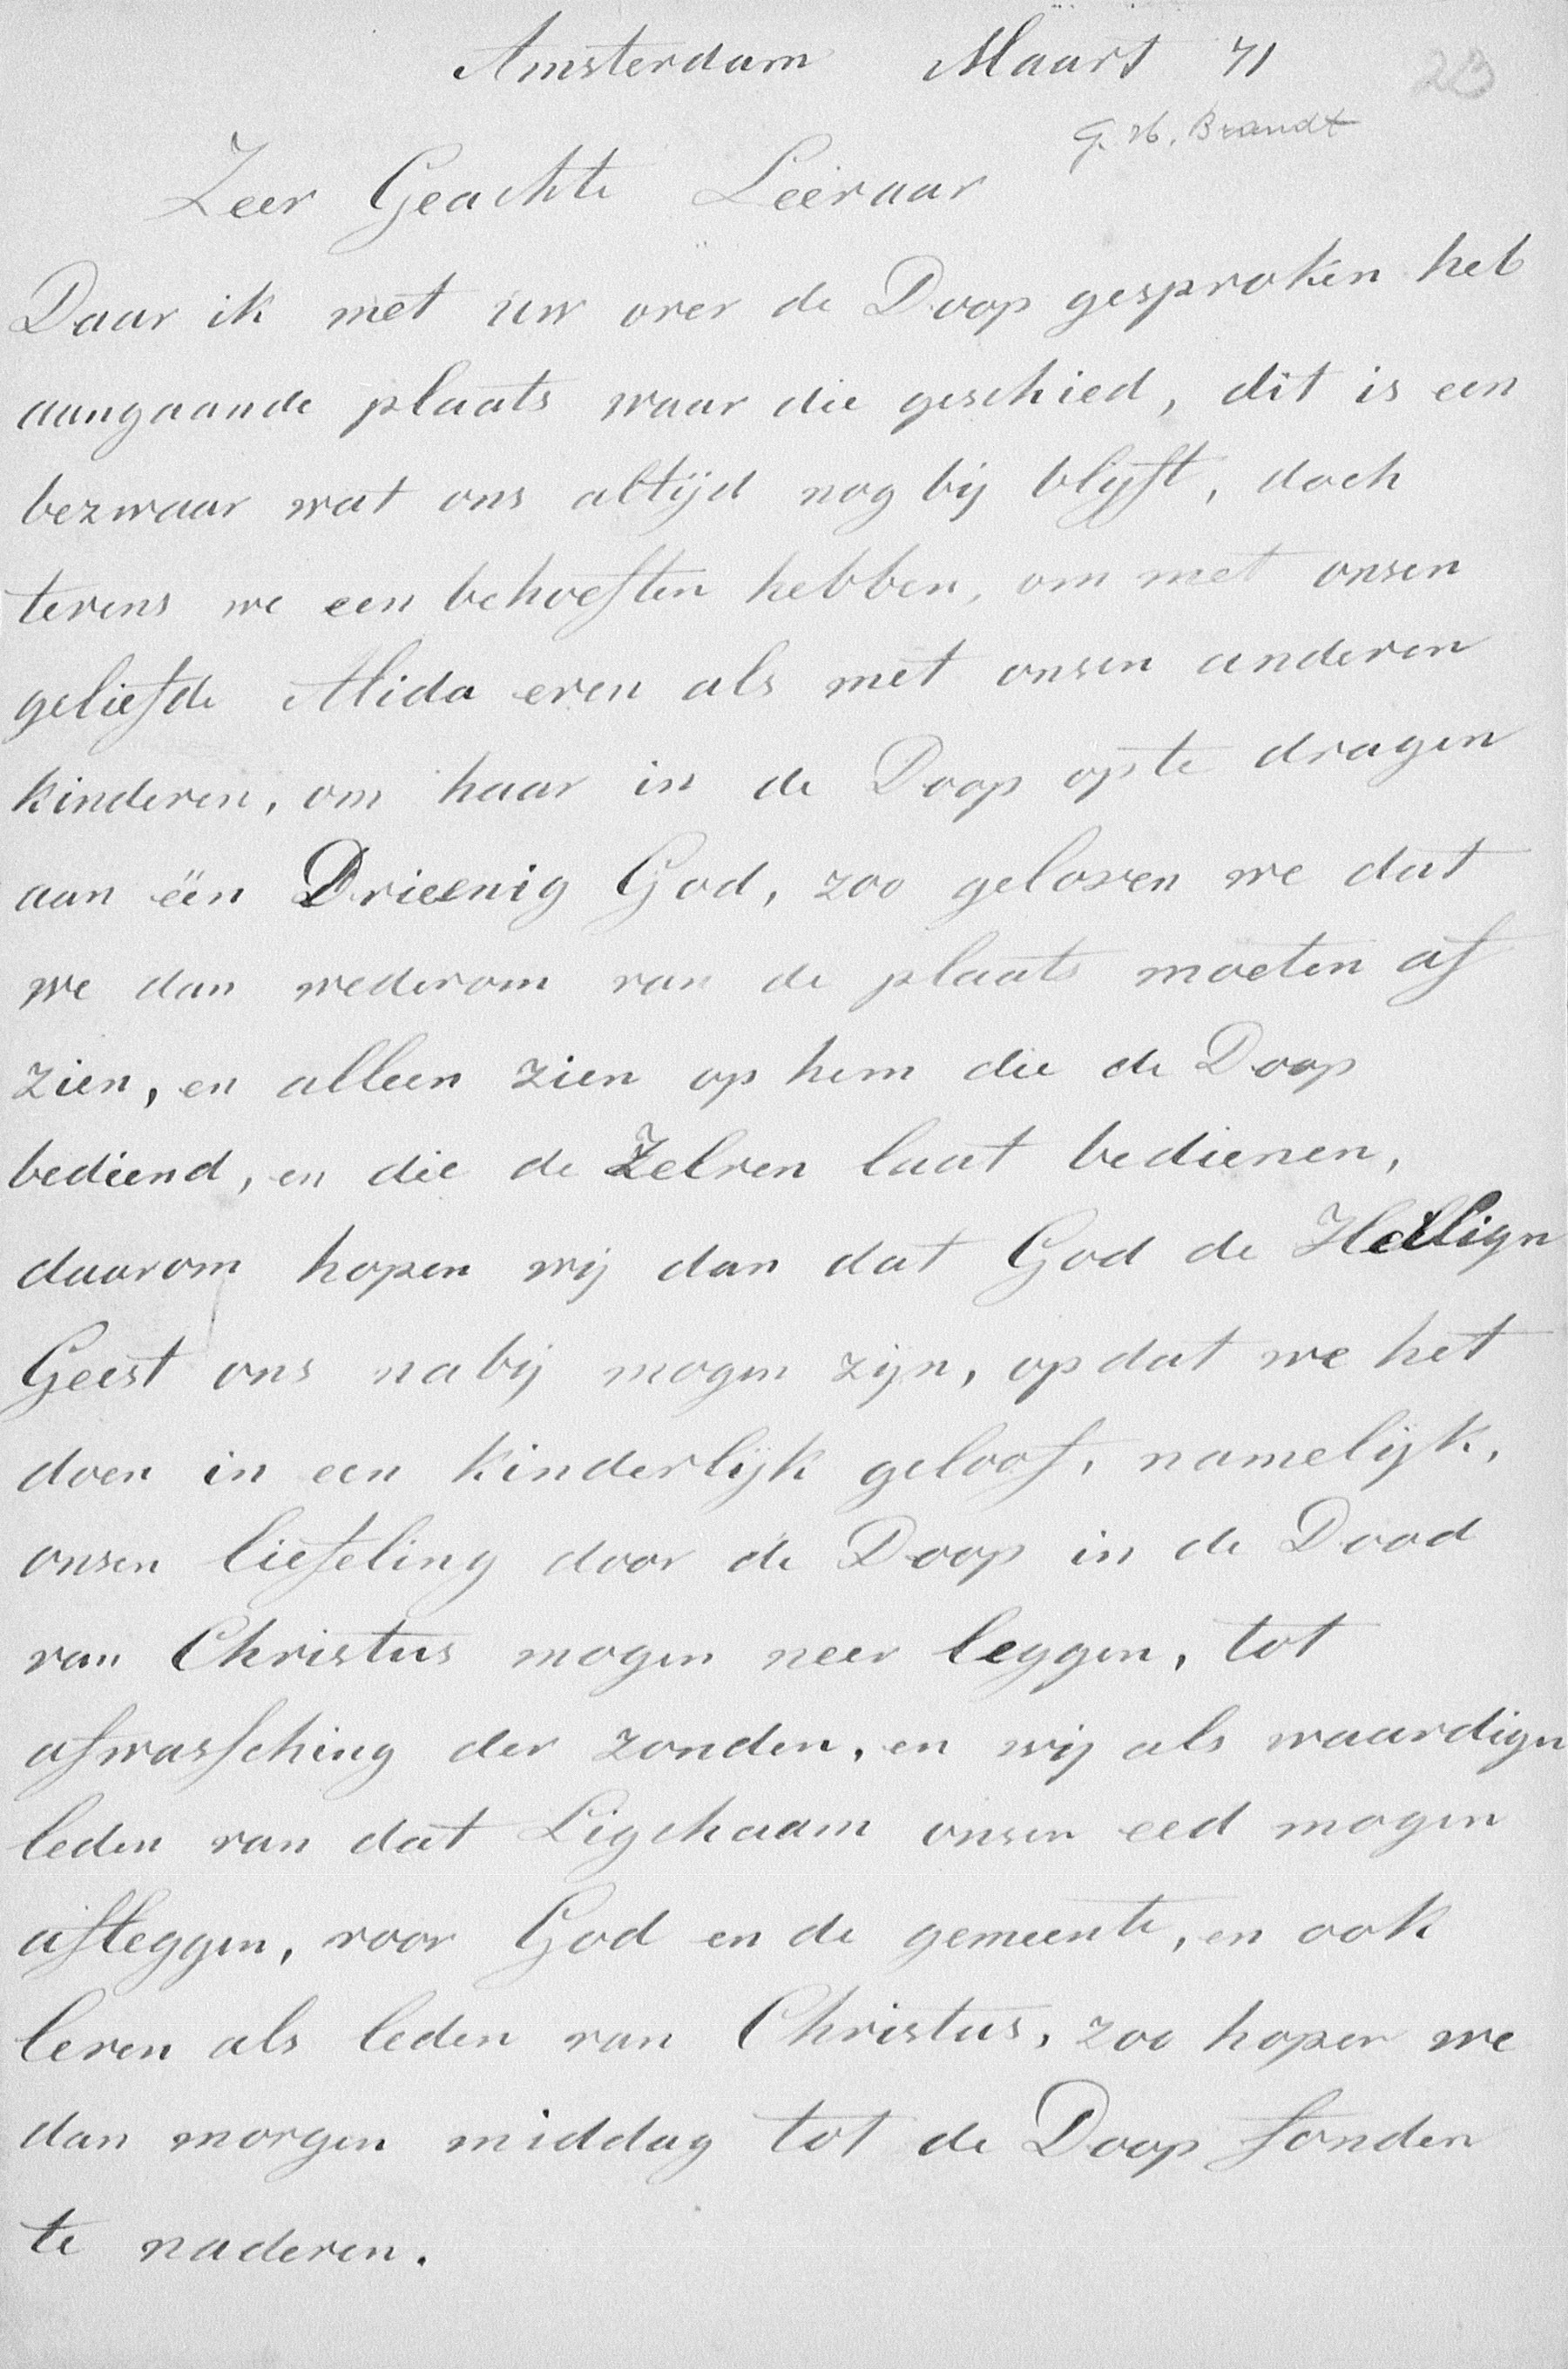 Amsterdam Maart 71
23
G. H. Brandt
Zeer Geachte Leeraar
Daar ik met uw over de Doop gesproken heb
aangaande plaats waar die geschied, dit is een
bezwaar wat ons altijd nog bij blijft, doch
tevens we een behoeften hebben, om met onsen
geliefde Alida even als met onsen anderen
kinderen, om haar in de Doop op te dragen
aan één Drieenig God, zoo geloven we dat
we dan wederom van de plaats moeten af
zien, en alleen zien op hem die de Doop
bediend, en die de Zelven laat bedienen,
daarom hopen wij dan dat God de Heilign
Geest ons nabij mogen zijn, opdat we het
doen in een kinderlijk geloof, namelijk,
onsen liefeling door de Doop in de Dood
van Christus mogen neer leggen, tot
afwassching der zonden, en wij als waardign
leden van dat Ligchaam onsen eed mogen
afleggen, voor God en de gemeente, en ook
leven als leden van Christus, zoo hopen we
dan morgen middag tot de Doop fonden
te naderen.